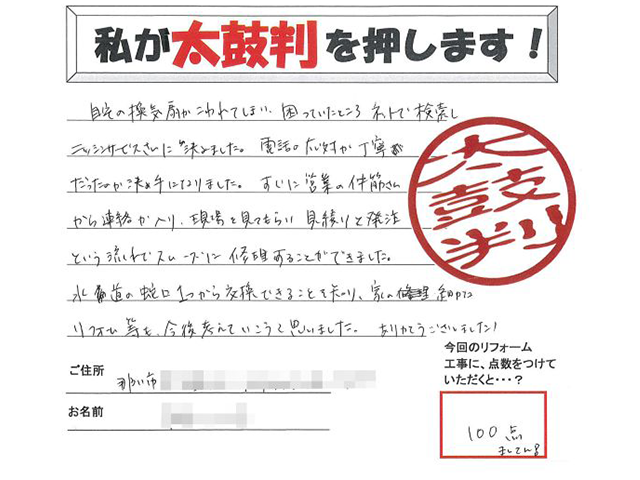 私が太鼓判を押します！
自宅の換気扇がこわれてしまい 困っていたところ ネットで検索し
ニッシンサービスさんに決めました。電話の応対が丁寧
だったのが決め手になりました。すぐに営業の件筋さん
から連絡が入り、現場を見てもらい 見積りと発注
という流れでスムーズに 修理することができました。
水道の蛇口1つから交換できることを知り、家の修理 細かな
リフォーム等も、今後考えていこうと思いました。ありがとうございました！
太鼓判
今回のリフォーム
工事に、点数をつけて
いただくと・・・？
ご住所
お名前
100点